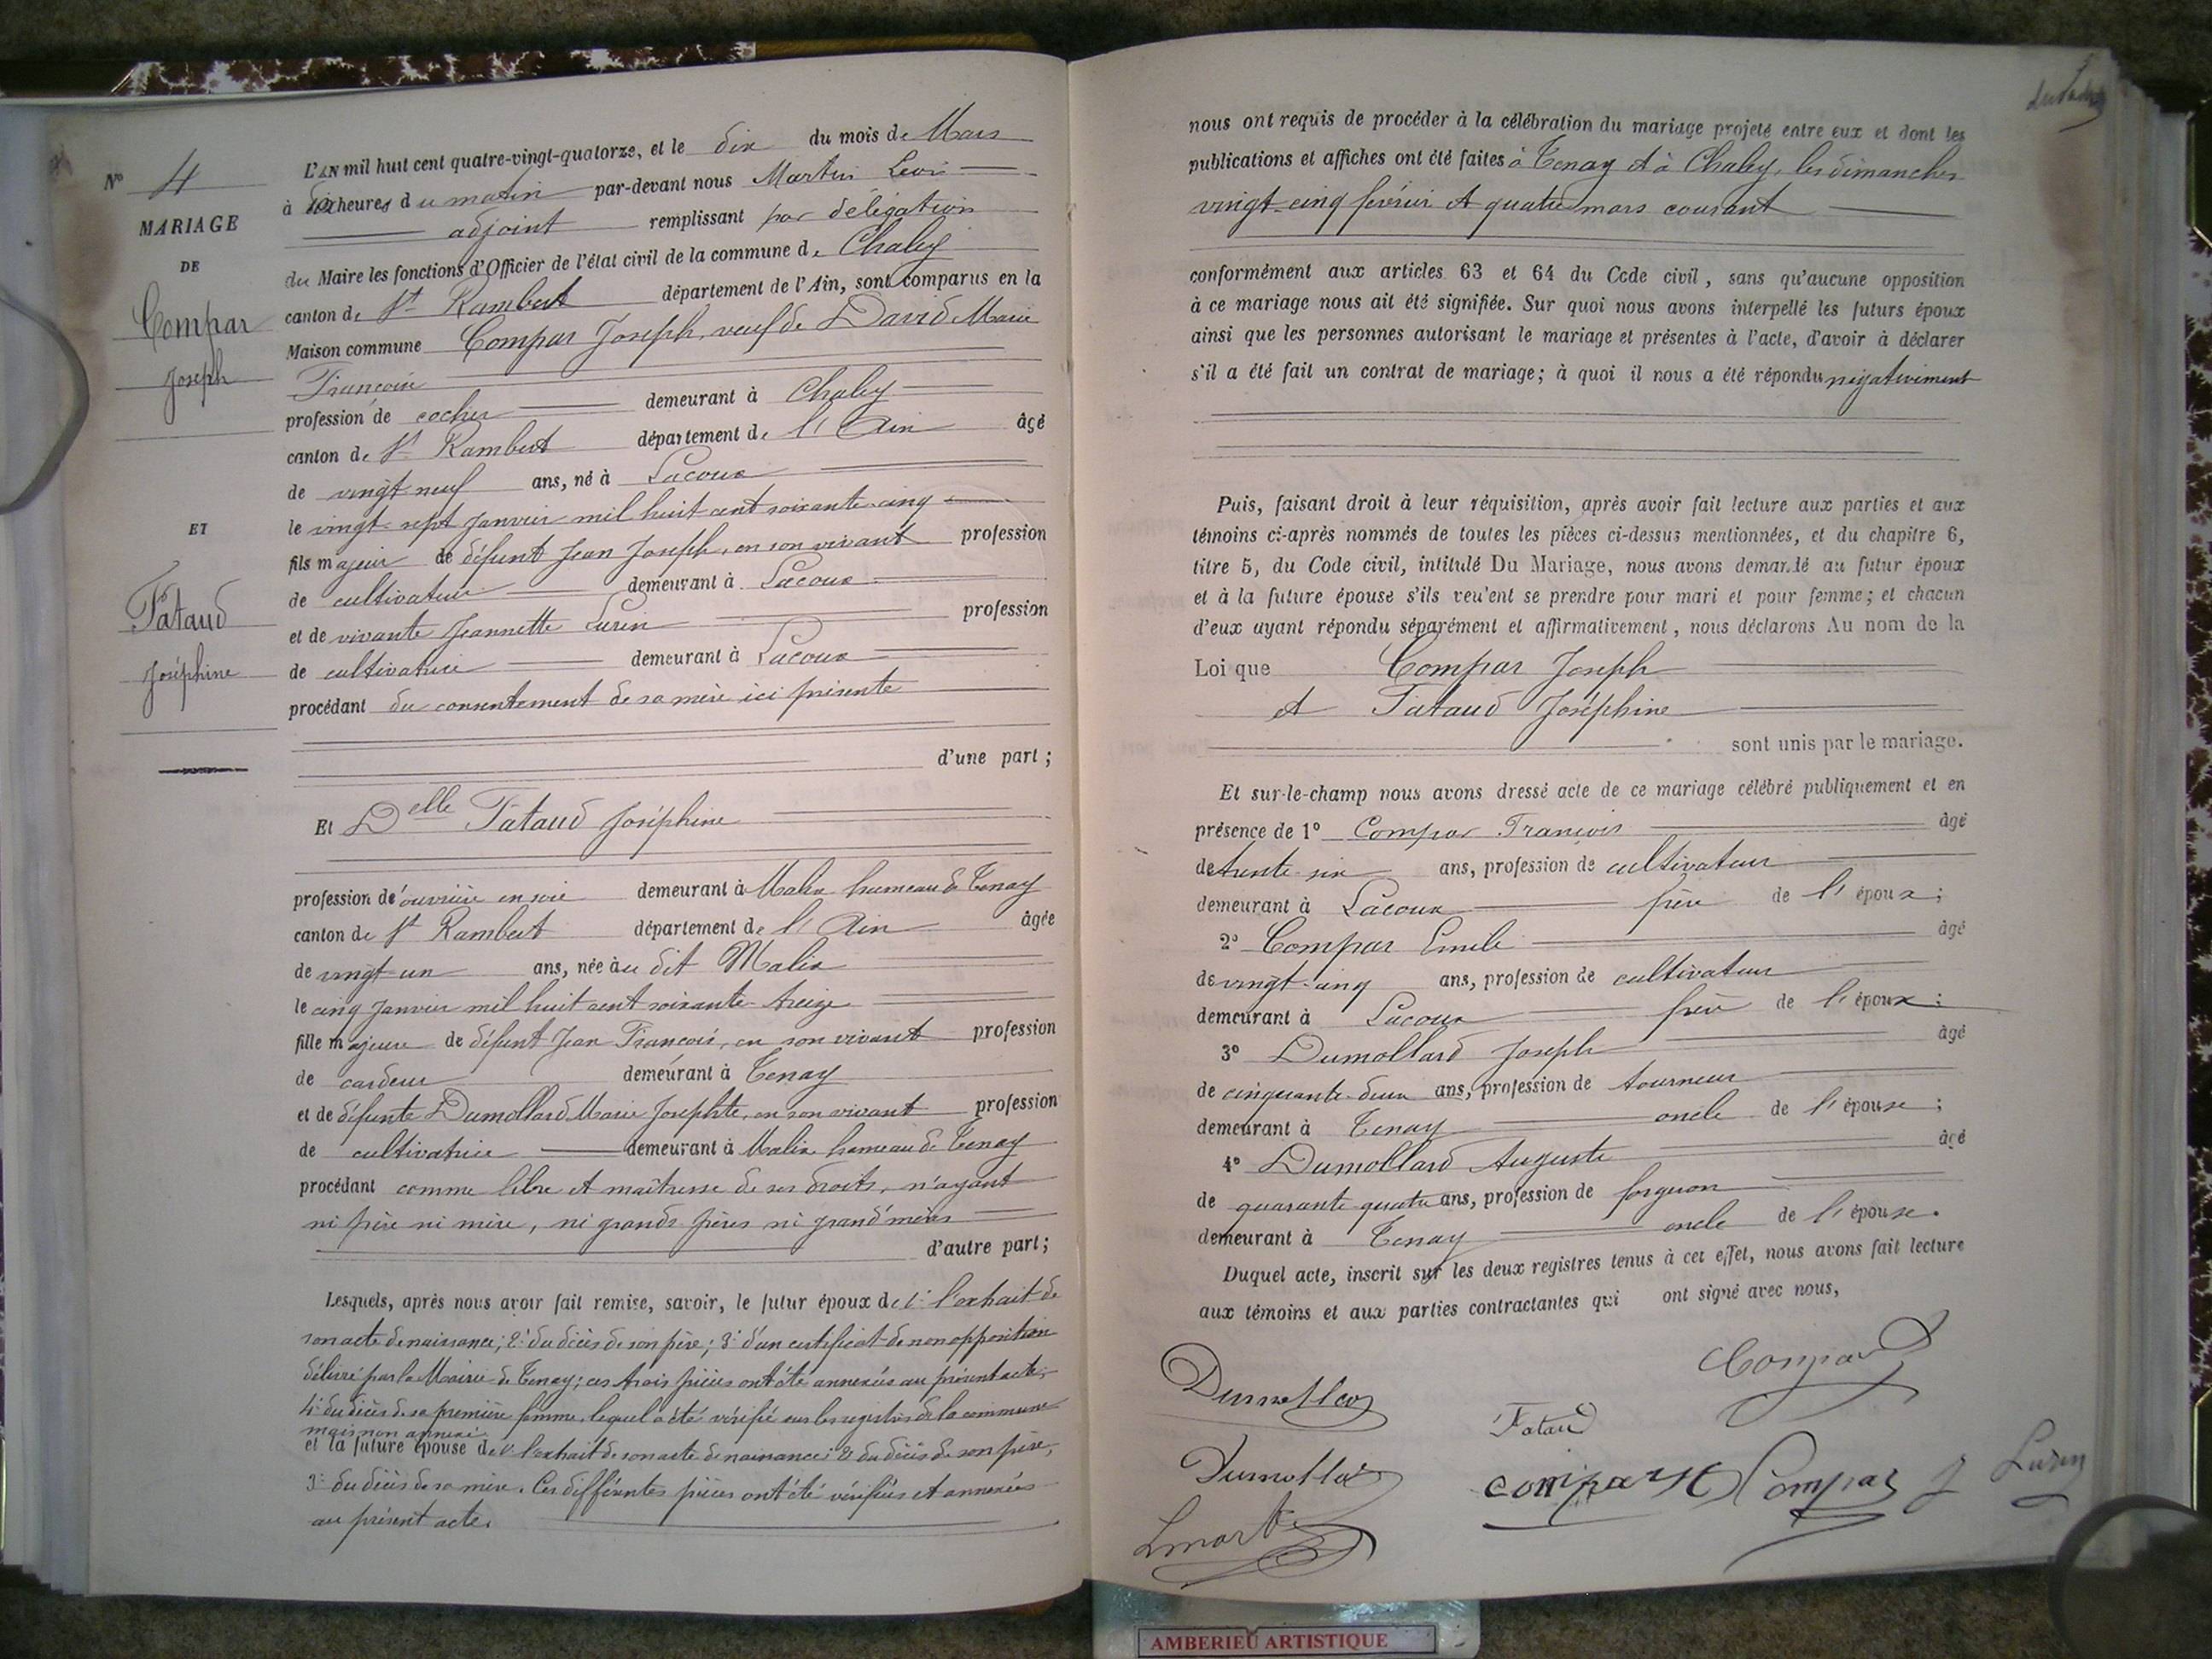 N° 4
MARIAGE
DE
Compar
Joseph
ET
Tataud
Joséphine
L'AN mil huit cent quatre-vingt-quatorze, et le dix du mois de Mars
à dix heures du matin par-devant nous Martin Leon
adjoint remplissant par délégation
du Maire les fonctions d'Officier de l'état civil de la commune de Chaley
canton de St Rambert département de l'Ain, sont comparus en la
Maison commune Compar Joseph, veuf de David Marie
Françoise
profession de cocher demeurant à Chaley
canton de St Rambert département de l'Ain âgé
de vingt neuf ans, né à Lacoux
le vingt-sept Janvier mil huit cent soixante-cinq
fils majeur de défunt Jean Joseph, en son vivant profession
de cultivateur demeurant à Lacoux
et de vivante Jeannette Lurin profession
de cultivatrice demeurant à Lacoux
procédant du consentement de sa mère ici présente
d'une part ;
Et Delle Tataud Joséphine
profession de ouvrière en soie demeurant à Malix hameau de Tenay
canton de St Rambert département de l'Ain âgée
de vingt-un ans, née à u dit Malix
le cinq Janvier mil huit cent soixante-treize
fille majeure de défunt Jean François, en son vivant profession
de cardeur demeurant à Tenay
et de défunte Dumollard Marie Josephte, en son vivant profession
de cultivatrice demeurant à Malix hameau de Tenay
procédant comme libre et maîtresse de ses droits, n'ayant
ni père ni mère, ni grands-pères ni grand'mères
d'autre part ;
Lesquels, après nous avoir fait remise, savoir, le futur époux de 1° l'extrait de
son acte de naissance; 2° du décès de son père; 3° d'un certificat de non opposition
délivré par la Mairie de Tenay; ces trois pièces ont été annexées au présent acte;
4° du décès de sa première femme, lequel a été vérifié sur les registres de la commune
mais non annexé
et la future épouse de 1° l'extrait de son acte de naissance; 2° du décès de son père,
3° du décès de sa mère. Ces différentes pièces ont été vérifiées et annexées
au présent acte.
nous ont requis de procéder à la célébration du mariage projeté entre eux et dont les
publications et affiches ont été faites à Tenay et à Chaley, les dimanches
vingt-cinq février et quatre mars courant
conformément aux articles 63 et 64 du Code civil, sans qu'aucune opposition
à ce mariage nous ait été signifiée. Sur quoi nous avons interpellé les futurs époux
ainsi que les personnes autorisant le mariage et présentes à l'acte, d'avoir à déclarer
s'il a été fait un contrat de mariage; à quoi il nous a été répondu négativement
Puis, faisant droit à leur réquisition, après avoir fait lecture aux parties et aux
témoins ci-après nommés de toutes les pièces ci-dessus mentionnées, et du chapitre 6,
titre 5, du Code civil, intitulé Du Mariage, nous avons demandé au futur époux
et à la future épouse s'ils veulent se prendre pour mari et pour femme; et chacun
d'eux ayant répondu séparément et affirmativement, nous déclarons Au nom de la
Loi que Compar Joseph
et Tataud Joséphine
sont unis par le mariage.
Et sur-le-champ nous avons dressé acte de ce mariage célébré publiquement et en
présence de 1° Compar François âgé
de trente-six ans, profession de cultivateur
demeurant à Lacoux frère de l'époux ;
2° Compar Emile âgé
de vingt-cinq ans, profession de cultivateur
demeurant à Lacoux frère de l'époux ;
3° Dumollard Joseph âgé
de cinquante-deux ans, profession de tourneur
demeurant à Tenay oncle de l'épouse ;
4° Dumollard Auguste âgé
de quarante-quatre ans, profession de forgeron
demeurant à Tenay oncle de l'épouse.
Duquel acte, inscrit sur les deux registres tenus à cet effet, nous avons fait lecture
aux témoins et aux parties contractantes qui ont signé avec nous,
Compar
Dumollard
Tataud
Dumollard
compar Compar J Lurin
Lmartin
AMBERIEU ARTISTIQUE